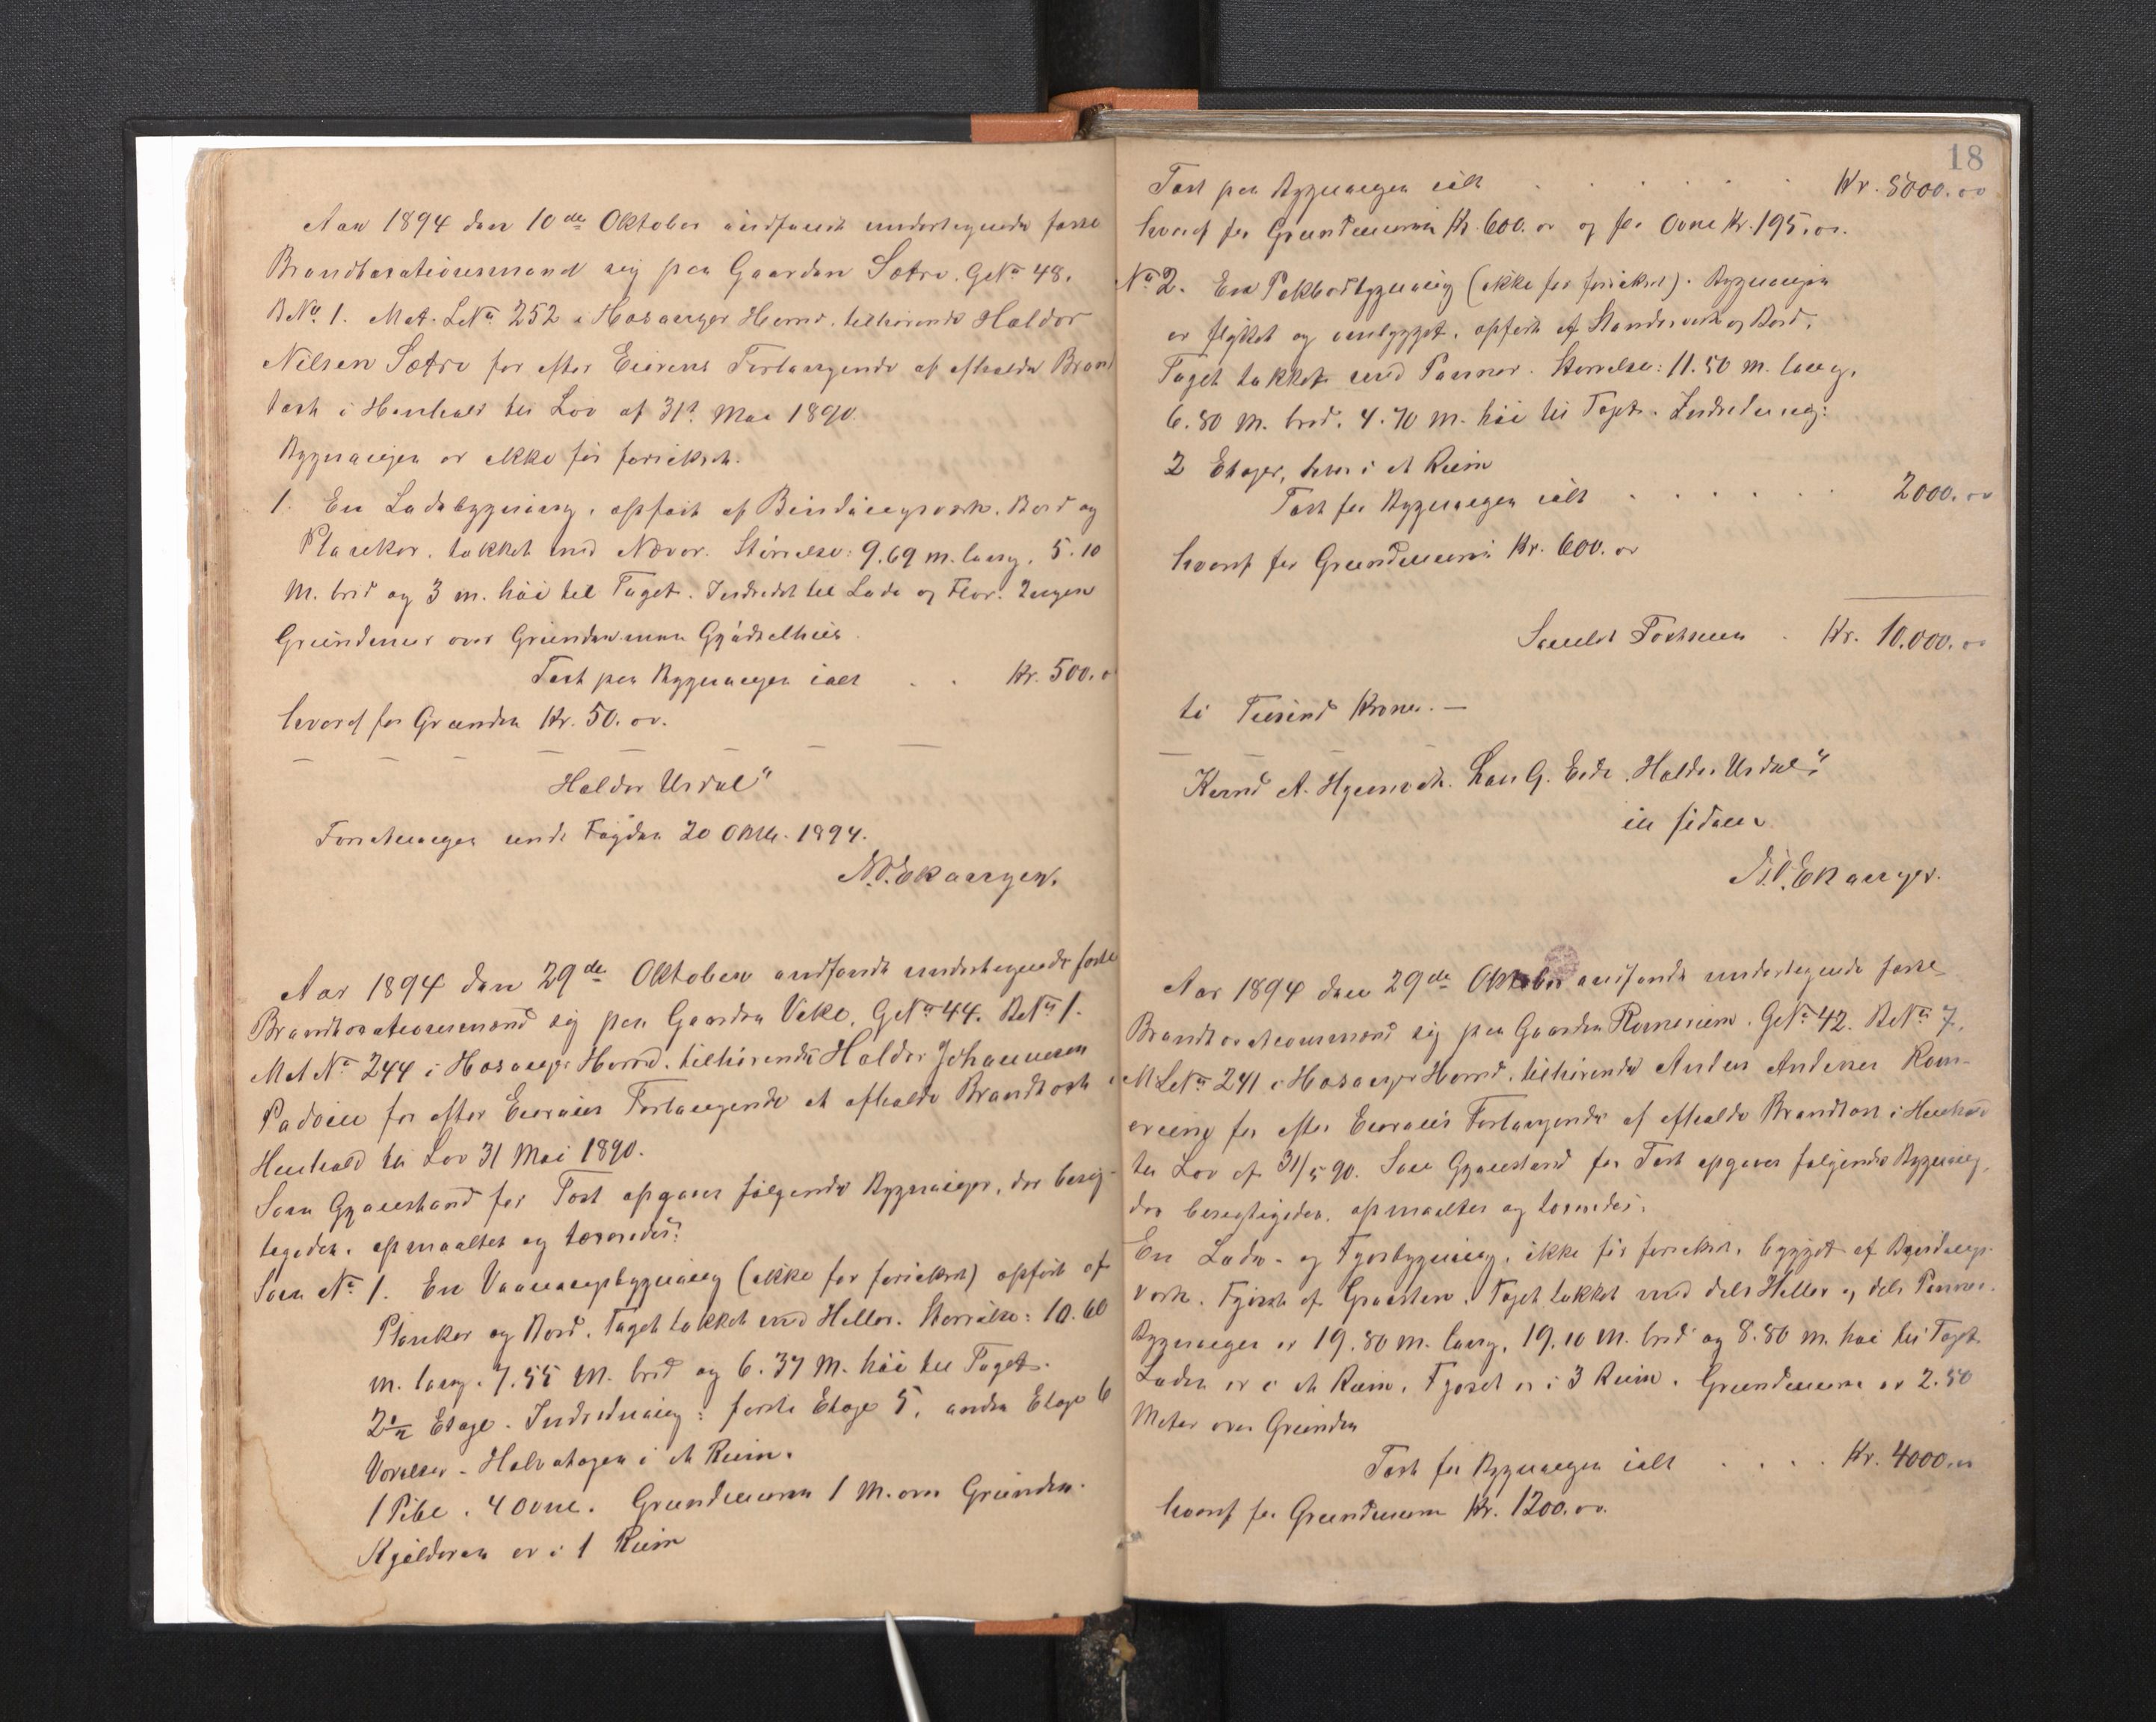 Aar 1894 den 10de Oktober indfandt undertegnede faste
Brandtaxationsmænd sig paa Gaarden Sætre. GNo 48.
BNo 1. Mat. LNo 252 i Hosanger Herred, tilhørende Haldor
Nilsen Sætre for efter Eierens Forlangende at afholde Brand
taxt i Henhold til Lov af 31te Mai 1890.
Bygningen er ikke før forsikret.
1. En Ladebygning, opført af Bindingsverk, Bord og
Planker, tækket med Næver. Størrelse: 9.69 m. lang, 5.10
m. bred og 3 m. høi til Taget. Indredet til Lade og Flor. Ingen
Grundmur over Grunden
Taxt paa Bygningen ialt . . Kr. 500.
hvoraf for Grunden Kr. 50.00.
Haldor Urdal"
Forretningen sendt Fogden 20 Oktbr. 1894.
N. O. Ekanger.
Aar 1894 den 29de Oktober indfandt undertegnede faste
Brandtaxationsmænd sig paa Gaarden Veke, GNo 44. BNo 1.
Mat No 244 i Hosanger Herred, tilhørende Haldor Johannesen
for efter Eierens Forlangende at afholde Brandtaxt i
Henhold til Lov 31 Mai 1890.
Som Gjenstand for Taxt opgaves følgende Bygninger, der besig-
tigedes, opmaaltes og taxeredes:
Som No 1. En Vaaningsbygning (ikke før forsikret) opført af
Planker og Bord. Taget tækket med Heller. Størrelse: 10.60
m. lang, 7.55 m. bred og 6.37 m. høi til Taget.
2 1/2 Etage. Indredning: første Etage 5, anden Etage 6
Værelser. Halvetagen i et Rum.
1 Pibe. 4 Ovne. Grundmuren 1 m. over Grunden.
Kjelderen er i 1 Rum
18
Taxt paa Bygningen ialt . . . . . Kr. 8000.00
hvoraf for Grundmuren Kr. 600.00 og for Ovne Kr. 195.00.
No 2. En Pakbodbygning (ikke før forsikret). Bygningen
er flyttet og ombygget, opført af Standerverk og Bord,
Taget tækket med Panner. Størrelse: 11.50 m. lang,
6.80 m. bred, 4.70 m. høi til Taget. Indredning:
2 Etager, hver i et Rum
Taxt for Bygningen ialt . . . . . . 2000.00
hvoraf for Grundmuren Kr. 600.00
Samlet Taxtsum . Kr. 10.000.00
ti Tusind Kroner.—
Lars G. Eide. Haldor Urdal"
N. O. Ekanger.
Aar 1894 den 29de Oktober indfandt undertegnede faste
Brandtaxationsmænd sig paa Gaarden Romereim, GNo 42. BNo 7,
MLNo 241 i Hosanger Herred, tilhørende Anders Andersen Rom-
ereim for efter Eierens Forlangende at afholde Brandtaxt i Henhold
til Lov af 31/5 90. Som Gjenstand for Taxt opgaves følgende Bygning,
der besigtigedes, opmaaltes og taxeredes:
En Lade- og Fjøsbygning, ikke før forsikret, bygget af Bindings-
verk. Fjøset af Graasten. Taget tækket med dels Heller og dels Panner.
Bygningen er 19.80 m. lang, 19.10 m. bred og 8.80 m. høi til Taget.
Laden er i et Rum, Fjøset er i 3 Rum. Grundmuren er 2.50
Meter over Grunden
Taxt for Bygningen ialt . . . . Kr. 4000.00
hvoraf for Grundmuren Kr. 1200.00.